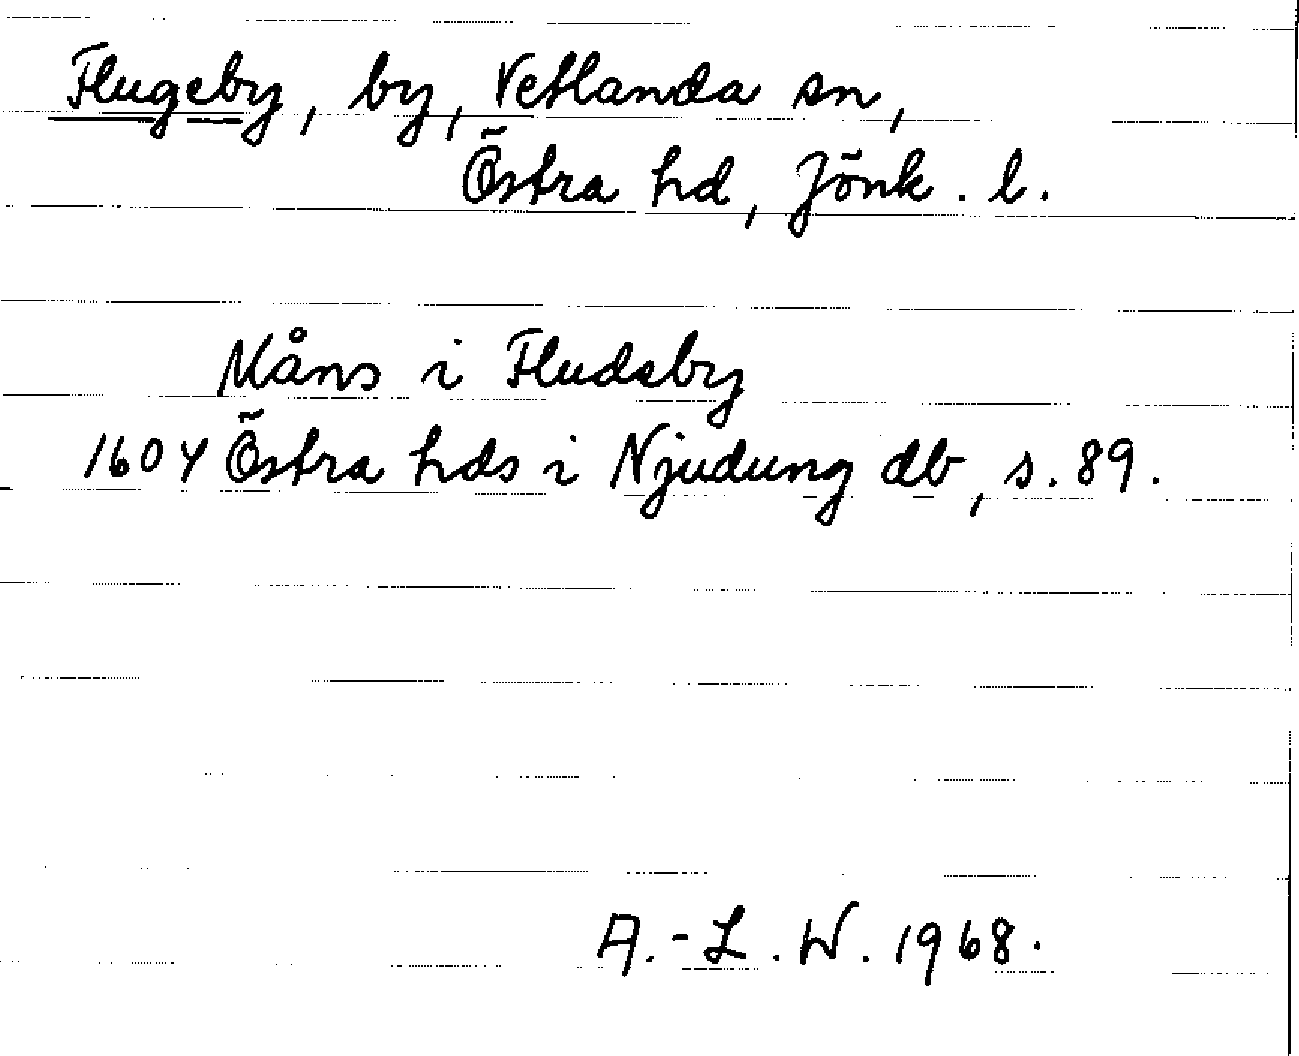 Flugeby, by, Vetlanda sn,
Östra hd, Jönk. l.
Måns i Fludsby
1604 Östra hds i Njudung db, s. 89.
A.-L. W. 1968.